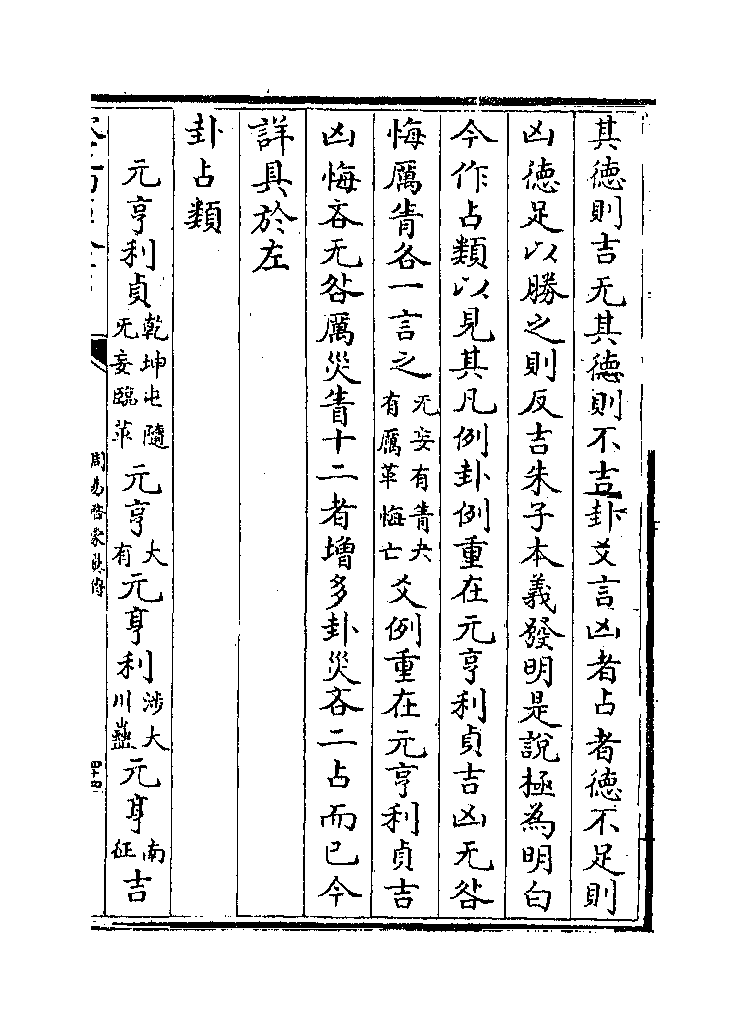 其徳則吉无其徳則不吉卦爻言凶者占者徳不足則
凶徳足以勝之則反吉朱子本義發明是說極為明白
今作占類以見其凡例卦例重在元亨利貞吉凶无咎
悔厲眚各一言之无妄有眚夬有厲革悔亡爻例重在元亨利貞吉
凶悔吝无咎厲災眚十二者增多卦災吝二占而已今
詳具於左
卦占類
元亨利貞乾坤屯隨无妄臨革元亨大有元亨利涉大川蠱元亨南征吉
周易啓蒙翼傳
四十四